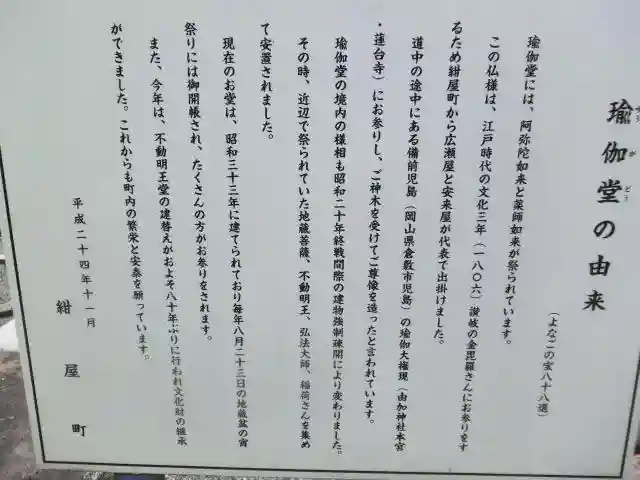 瑜伽堂の由来
(よなごの宝八十八選)
瑜伽堂には、阿弥陀如来と薬師如来が祭られています。
この仏様は、江戸時代の文化三年(一八〇六)讃岐の金毘羅さんにお参りをす
るため紺屋町から広瀬屋と安来屋が代表で出掛けました。
道中の途中にある備前児島(岡山県倉敷市児島)の瑜伽大権現(由加神社本宮
・蓮台寺)にお参りし、ご神木を受けてご尊像を造ったと言われています。
瑜伽堂の境内の様相も昭和二十年終戦間際の建物強制疎開により変わりました。
その時、近辺で祭られていた地蔵菩薩、不動明王、弘法大師、稲荷さんを集め
て安置されました。
現在のお堂は、昭和三十三年に建てられており毎年八月二十三日の地蔵盆の宵
祭りには御開帳され、たくさんの方がお参りをされます。
また、今年は、不動明王堂の建替えがおよそ八十年ぶりに行われ文化財の継承
ができました。これからも町内の繁栄と安泰を願っています。
平成二十四年十一月
紺屋町